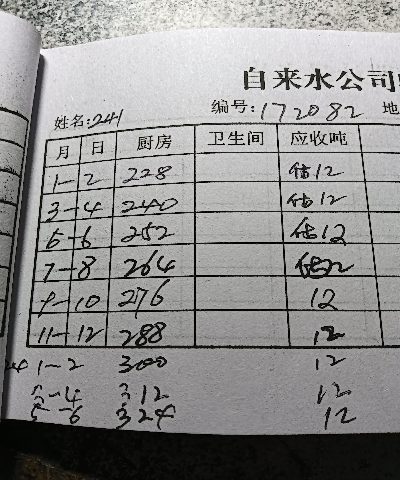 自来水公司
姓名:241 编号:172082 地
月 日 厨房 卫生间 应收吨
1-2 228 估12
3-4 240 估12
5-6 252 估12
7-8 264 估12
9-10 276 12
11-12 288 12
1-2 300 12
3-4 312 12
5-6 324 12